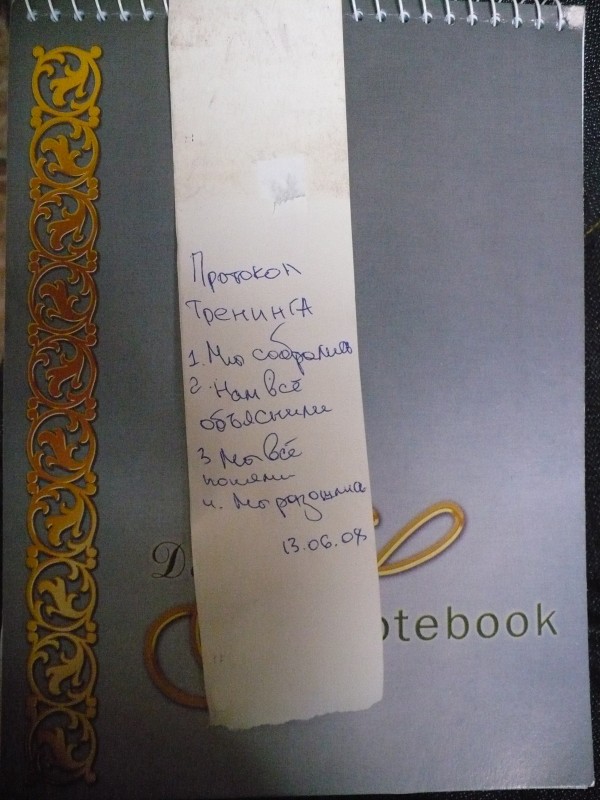 Протокол
Тренинга
1. Мы собрались
2. Нам всё
объяснили
3 Мы всё
поняли
4. Мы разошлись
13.06.08
otebook